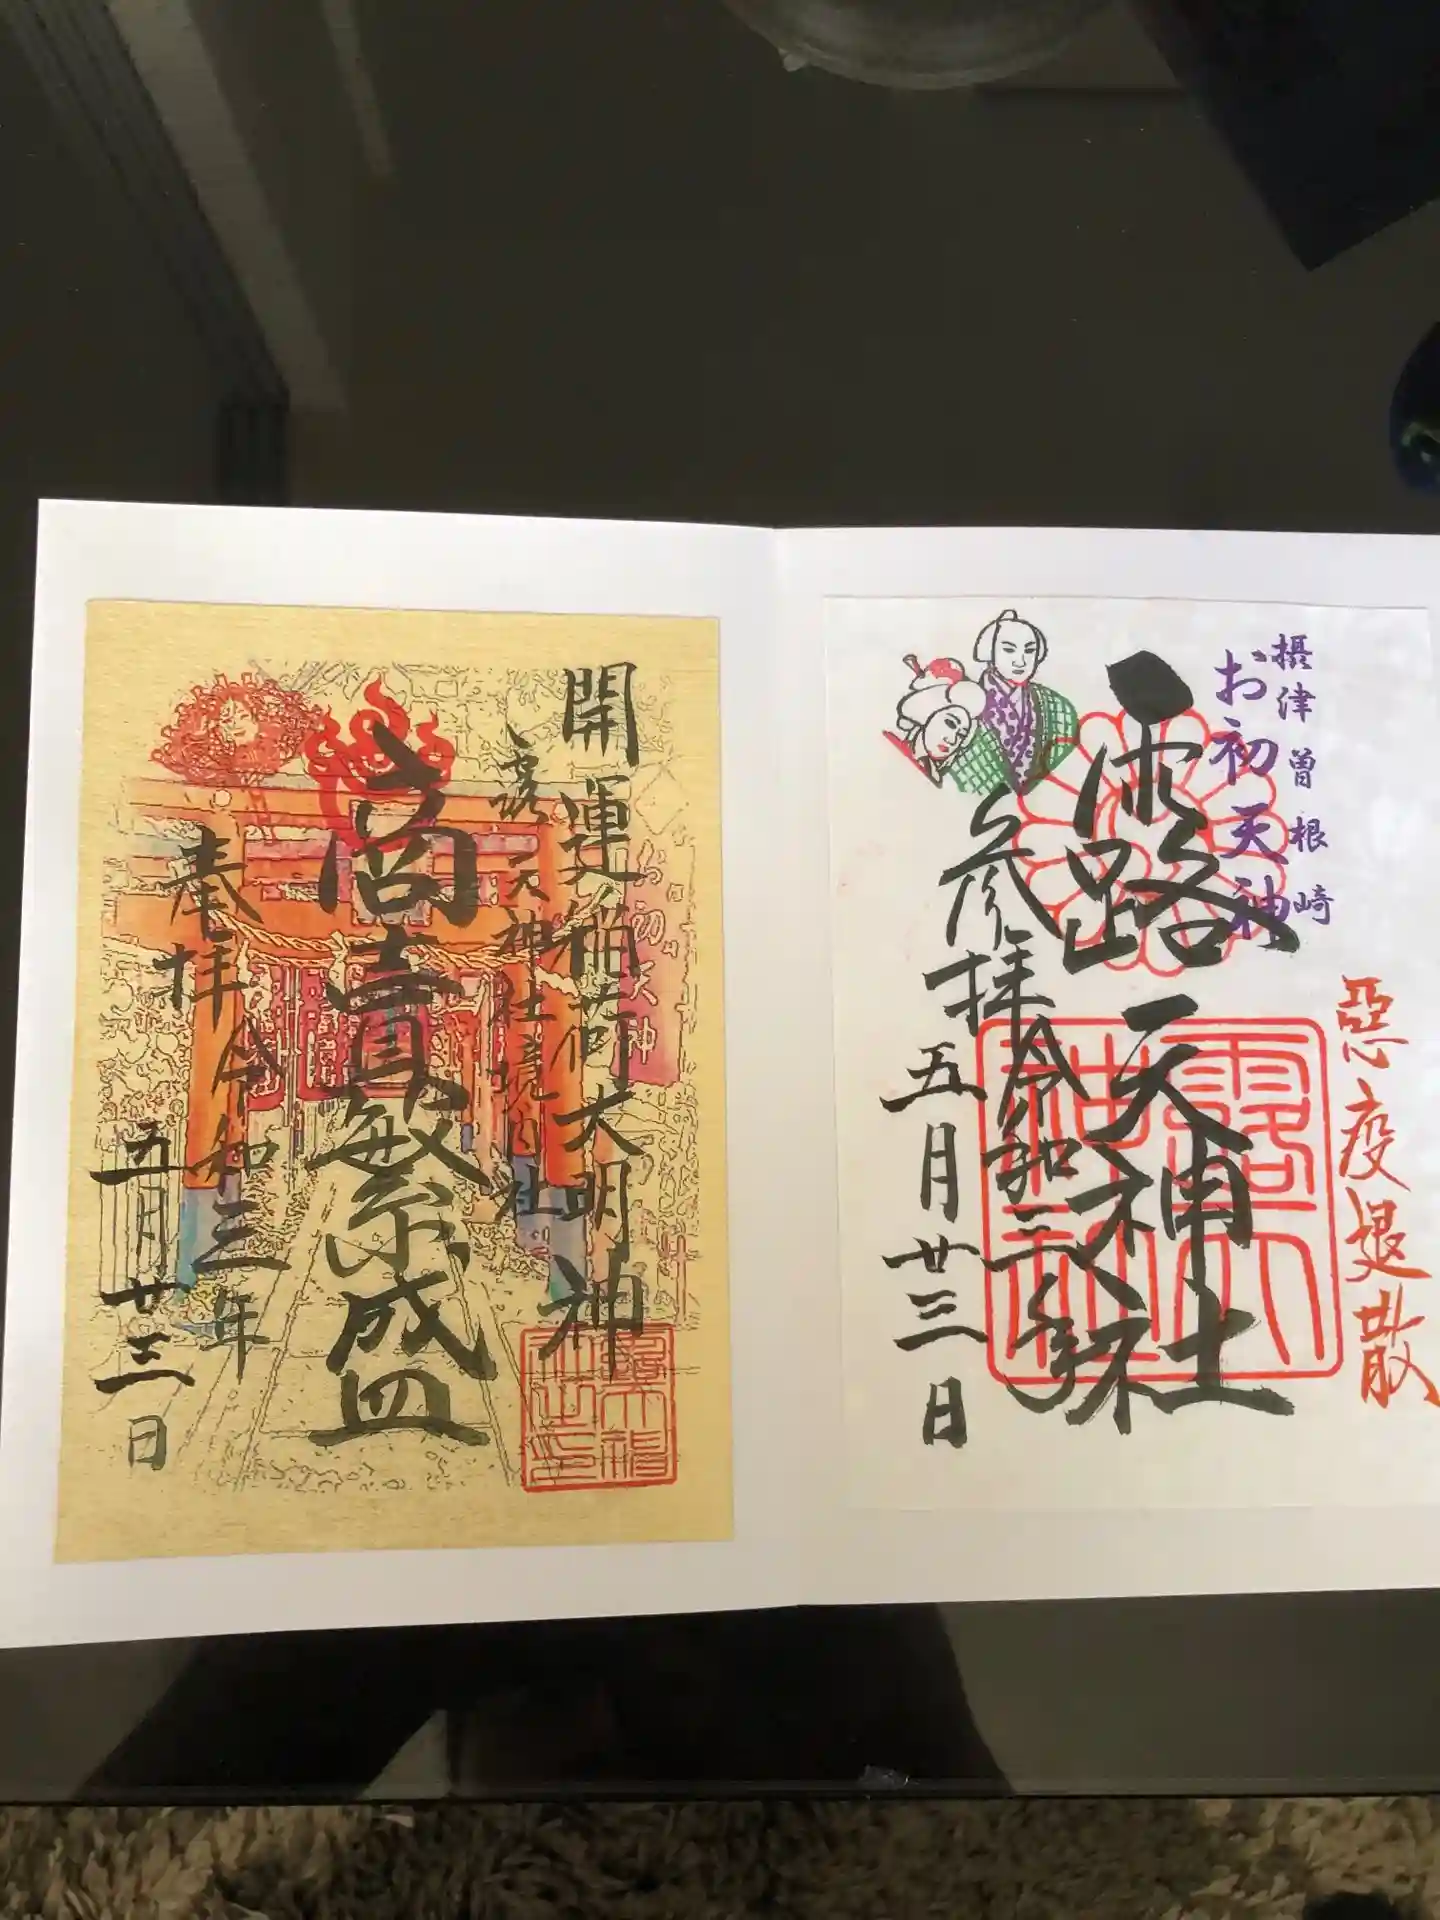 摂津曽根崎
お初天神
惡疫退散
露天神社
参拝令和三年
五月廿三日
開運稲荷大明神
露天神社境内社
商売繁盛
奉拝令和三年
五月廿三日